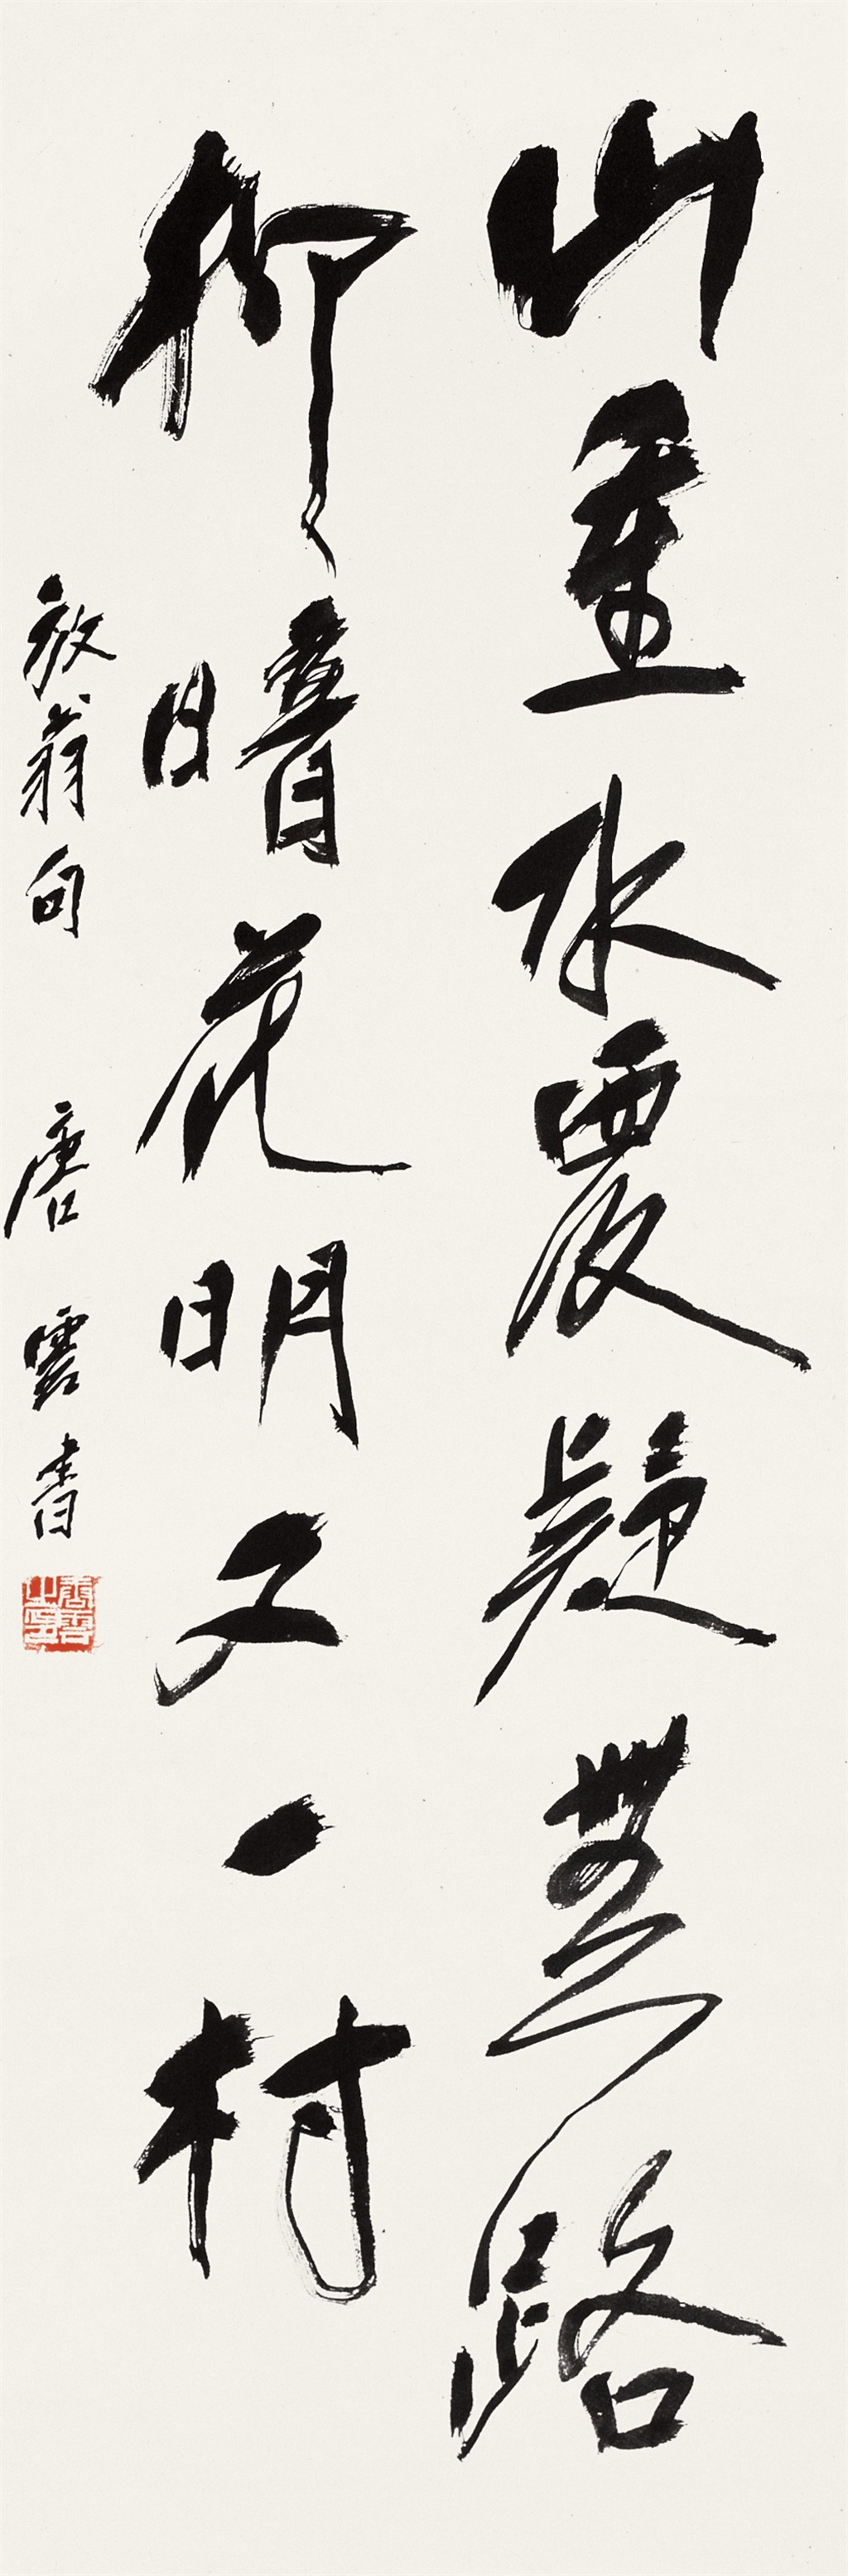 山重水覆疑無路
柳暗花明又一村
放翁句 唐雲書